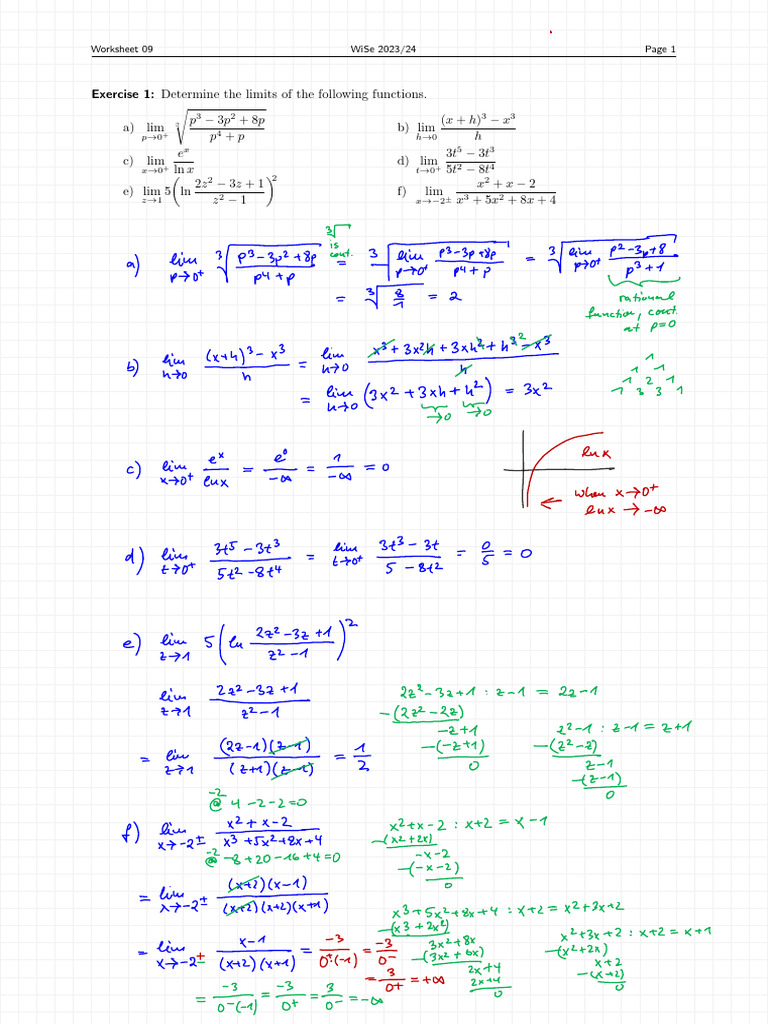 Worksheet 09 WiSe 2023/24 Page 1
Exercise 1: Determine the limits of the following functions.
a) lim p→0⁺ ∛((p³ − 3p² + 8p)/(p⁴ + p)) b) lim h→0 ((x + h)³ − x³)/h
c) lim x→0⁺ eˣ/ln x d) lim t→0⁺ (3t⁵ − 3t³)/(5t² − 8t⁴)
e) lim z→1 5(ln (2z² − 3z + 1)/(z² − 1))² f) lim x→−2± (x² + x − 2)/(x³ + 5x² + 8x + 4)
∛ is cont.
a) lim p→0⁺ ∛((p³−3p²+8p)/(p⁴+p)) = ∛(lim p→0⁺ (p³−3p+8p)/(p⁴+p)) = ∛(lim p→0⁺ (p²−3p+8)/(p³+1))
= ∛(8/1) = 2
rational
function, cont.
at p=0
b) lim h→0 ((x+h)³−x³)/h = lim h→0 (x³+3x²h+3xh²+h³−x³)/h
= lim h→0 (3x²+3xh+h²) = 3x²
→0 →0
1
1 1
1 2 1
1 3 3 1
c) lim x→0⁺ eˣ/ln x = e⁰/−∞ = 1/−∞ = 0
ln x
← when x→0⁺
ln x → −∞
d) lim t→0⁺ (3t⁵−3t³)/(5t²−8t⁴) = lim t→0⁺ (3t³−3t)/(5−8t²) = 0/5 = 0
e) lim z→1 5(ln (2z²−3z+1)/(z²−1))²
lim z→1 (2z²−3z+1)/(z²−1)
= lim z→1 ((2z−1)(z−1))/((z+1)(z−1)) = 1/2
2z²−3z+1 : z−1 = 2z−1
−(2z²−2z)
−z+1
−(−z+1)
0
z²−1 : z−1 = z+1
−(z²−z)
z−1
−(z−1)
0
−2
@ 4−2−2=0
f) lim x→−2± (x²+x−2)/(x³+5x²+8x+4)
−2
@ −8+20−16+4=0
= lim x→−2± ((x+2)(x−1))/((x+2)(x+2)(x+1))
= lim x→−2± (x−1)/((x+2)(x+1)) = −3/(0⁺(−1)) = −3/0⁻
= 3/0⁺ = +∞
= −3/(0⁻(−1)) = −3/0⁺ = 3/0⁻ = −∞
x²+x−2 : x+2 = x−1
−(x²+2x)
−x−2
−(−x−2)
0
x³+5x²+8x+4 : x+2 = x²+3x+2
−(x³+2x²)
3x²+8x
−(3x²+6x)
2x+4
2x+4
0
x²+3x+2 : x+2 = x+1
−(x²+2x)
x+2
−(x+2)
0